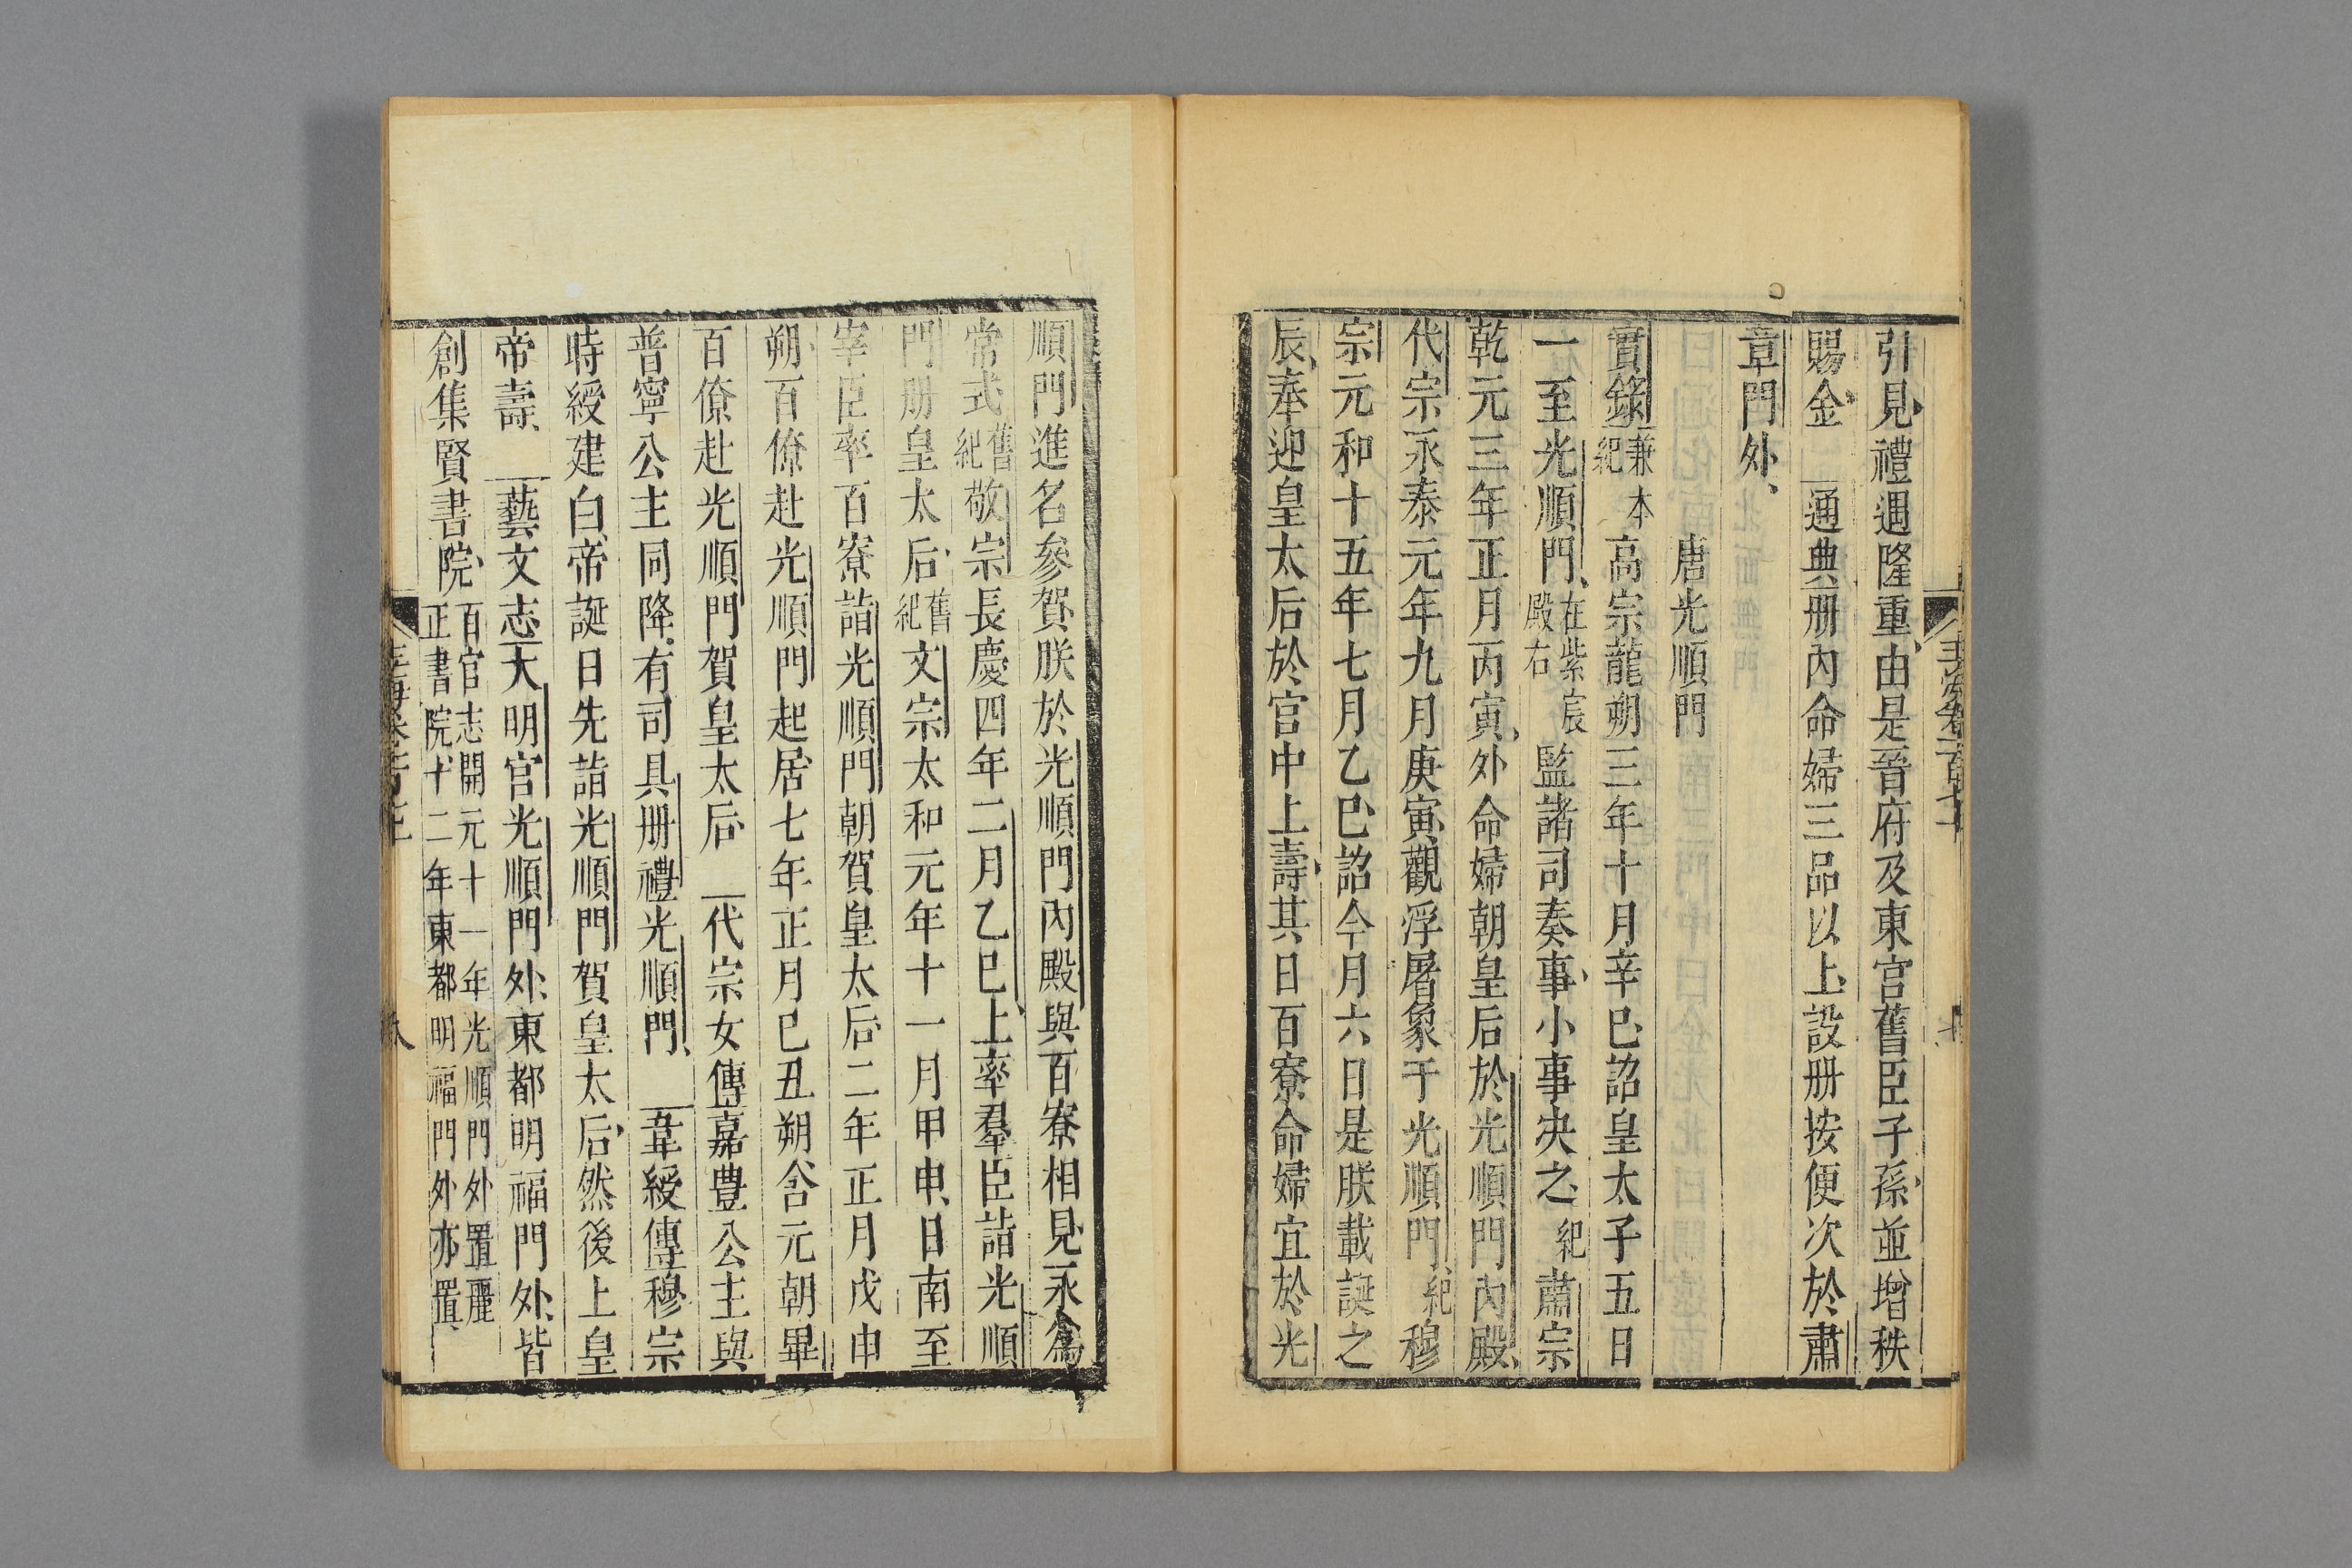 引見禮遇隆重由是晉府及東宮舊臣子孫並增秩
賜金 通典册內命婦三品以上設册按便次於肅
章門外
唐光順門
實錄兼本紀高宗龍朔三年十月辛巳詔皇太子五日
一至光順門在紫宸殿右監諸司奏事小事决之紀肅宗
乾元三年正月丙寅外命婦朝皇后於光順門內殿
代宗永泰元年九月庚寅觀浮屠象于光順門紀穆
宗元和十五年七月乙巳詔今月六日是朕載誕之
辰奉迎皇太后於宮中上壽其日百寮命婦宜於光
順門進名參賀朕於光順門內殿與百寮相見永爲
常式舊紀敬宗長慶四年二月乙巳上率羣臣詣光順
門册皇太后舊紀文宗太和元年十一月甲申日南至
宰臣率百寮詣光順門朝賀皇太后二年正月戊申
朔百僚赴光順門起居七年正月己丑朔含元朝畢
百僚赴光順門賀皇太后 代宗女傳嘉豐公主與
普寧公主同降有司具册禮光順門 韋綬傳穆宗
時綬建白帝誕日先詣光順門賀皇太后然後上皇
帝壽 藝文志大明宮光順門外東都明福門外皆
創集賢書院百官志開元十一年光順門外置麗正書院十二年東都明福門外亦置